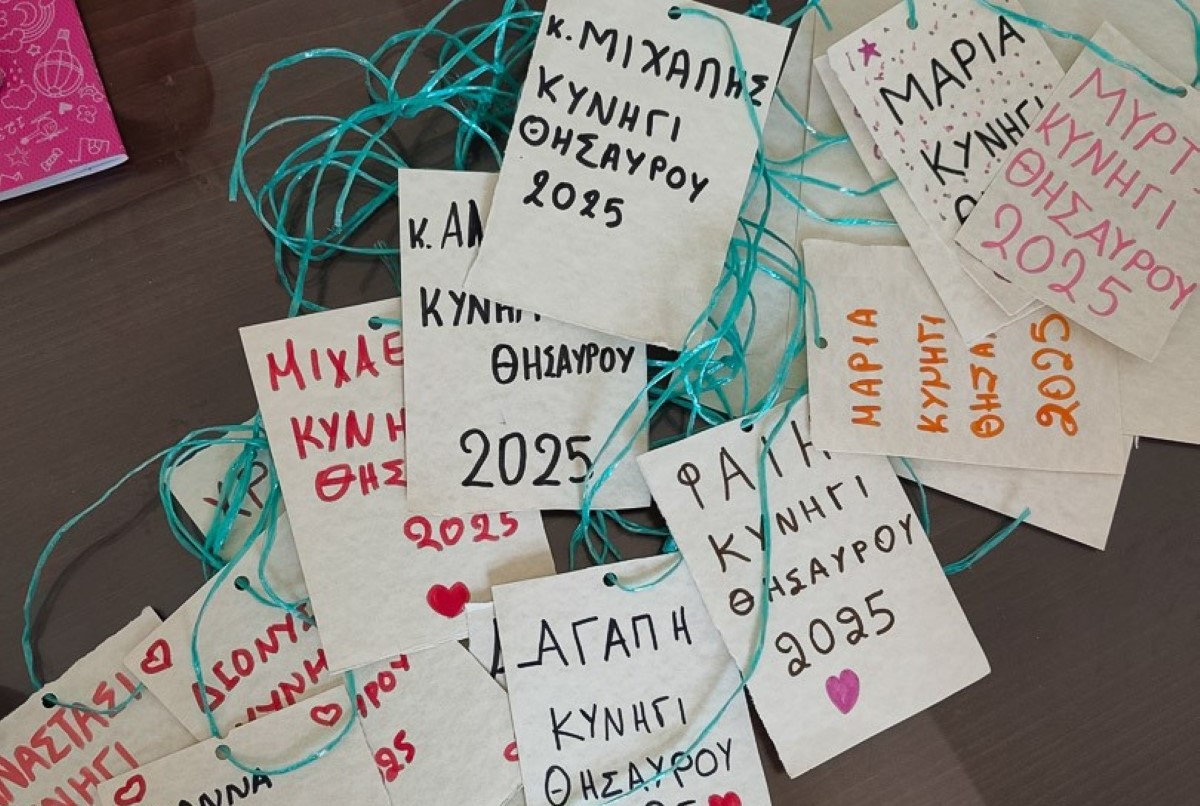 κ. ΜΙΧΑΠΗΣ
ΚΥΝΗΓΙ
ΘΗΣΑΥΡΟΥ
2025
ΜΑΡΙΑ
ΚΥΝΗΓΙ
ΜΥΡΤ
ΚΥΝΗΓΙ
ΘΗΣΑΥΡΟΥ
2025
κ. ΑΝ
ΚΥΝΗΓΙ
ΘΗΣΑΥΡΟΥ
2025
ΜΑΡΙΑ
ΚΥΝΗΓΙ
ΘΗΣΑ
2025
ΜΙΧΑΕ
ΚΥΝΗ
ΘΗΣ
2025
ΦΑΙΗ
ΚΥΝΗΓΙ
ΘΗΣΑΥΡΟΥ
2025
ΧΡ
ΔΙΟΝΥΣ
ΚΥΝΗ
ΥΡΟΥ
25
ΑΓΑΠΗ
ΚΥΝΗΓΙ
ΘΗΣΑΥΡΟΥ
ΝΑΣΤΑΣΙ
ΝΗΓΙ
ΑΝΝΑ